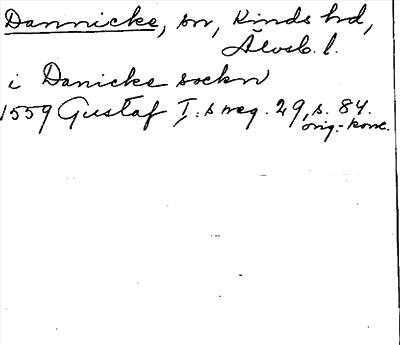 Dannicke, sn, Kinds hd,
Älvsb. l.
i Danicke sockn
1559 Gustaf I:s reg. 29, s. 84.
orig.-konc.